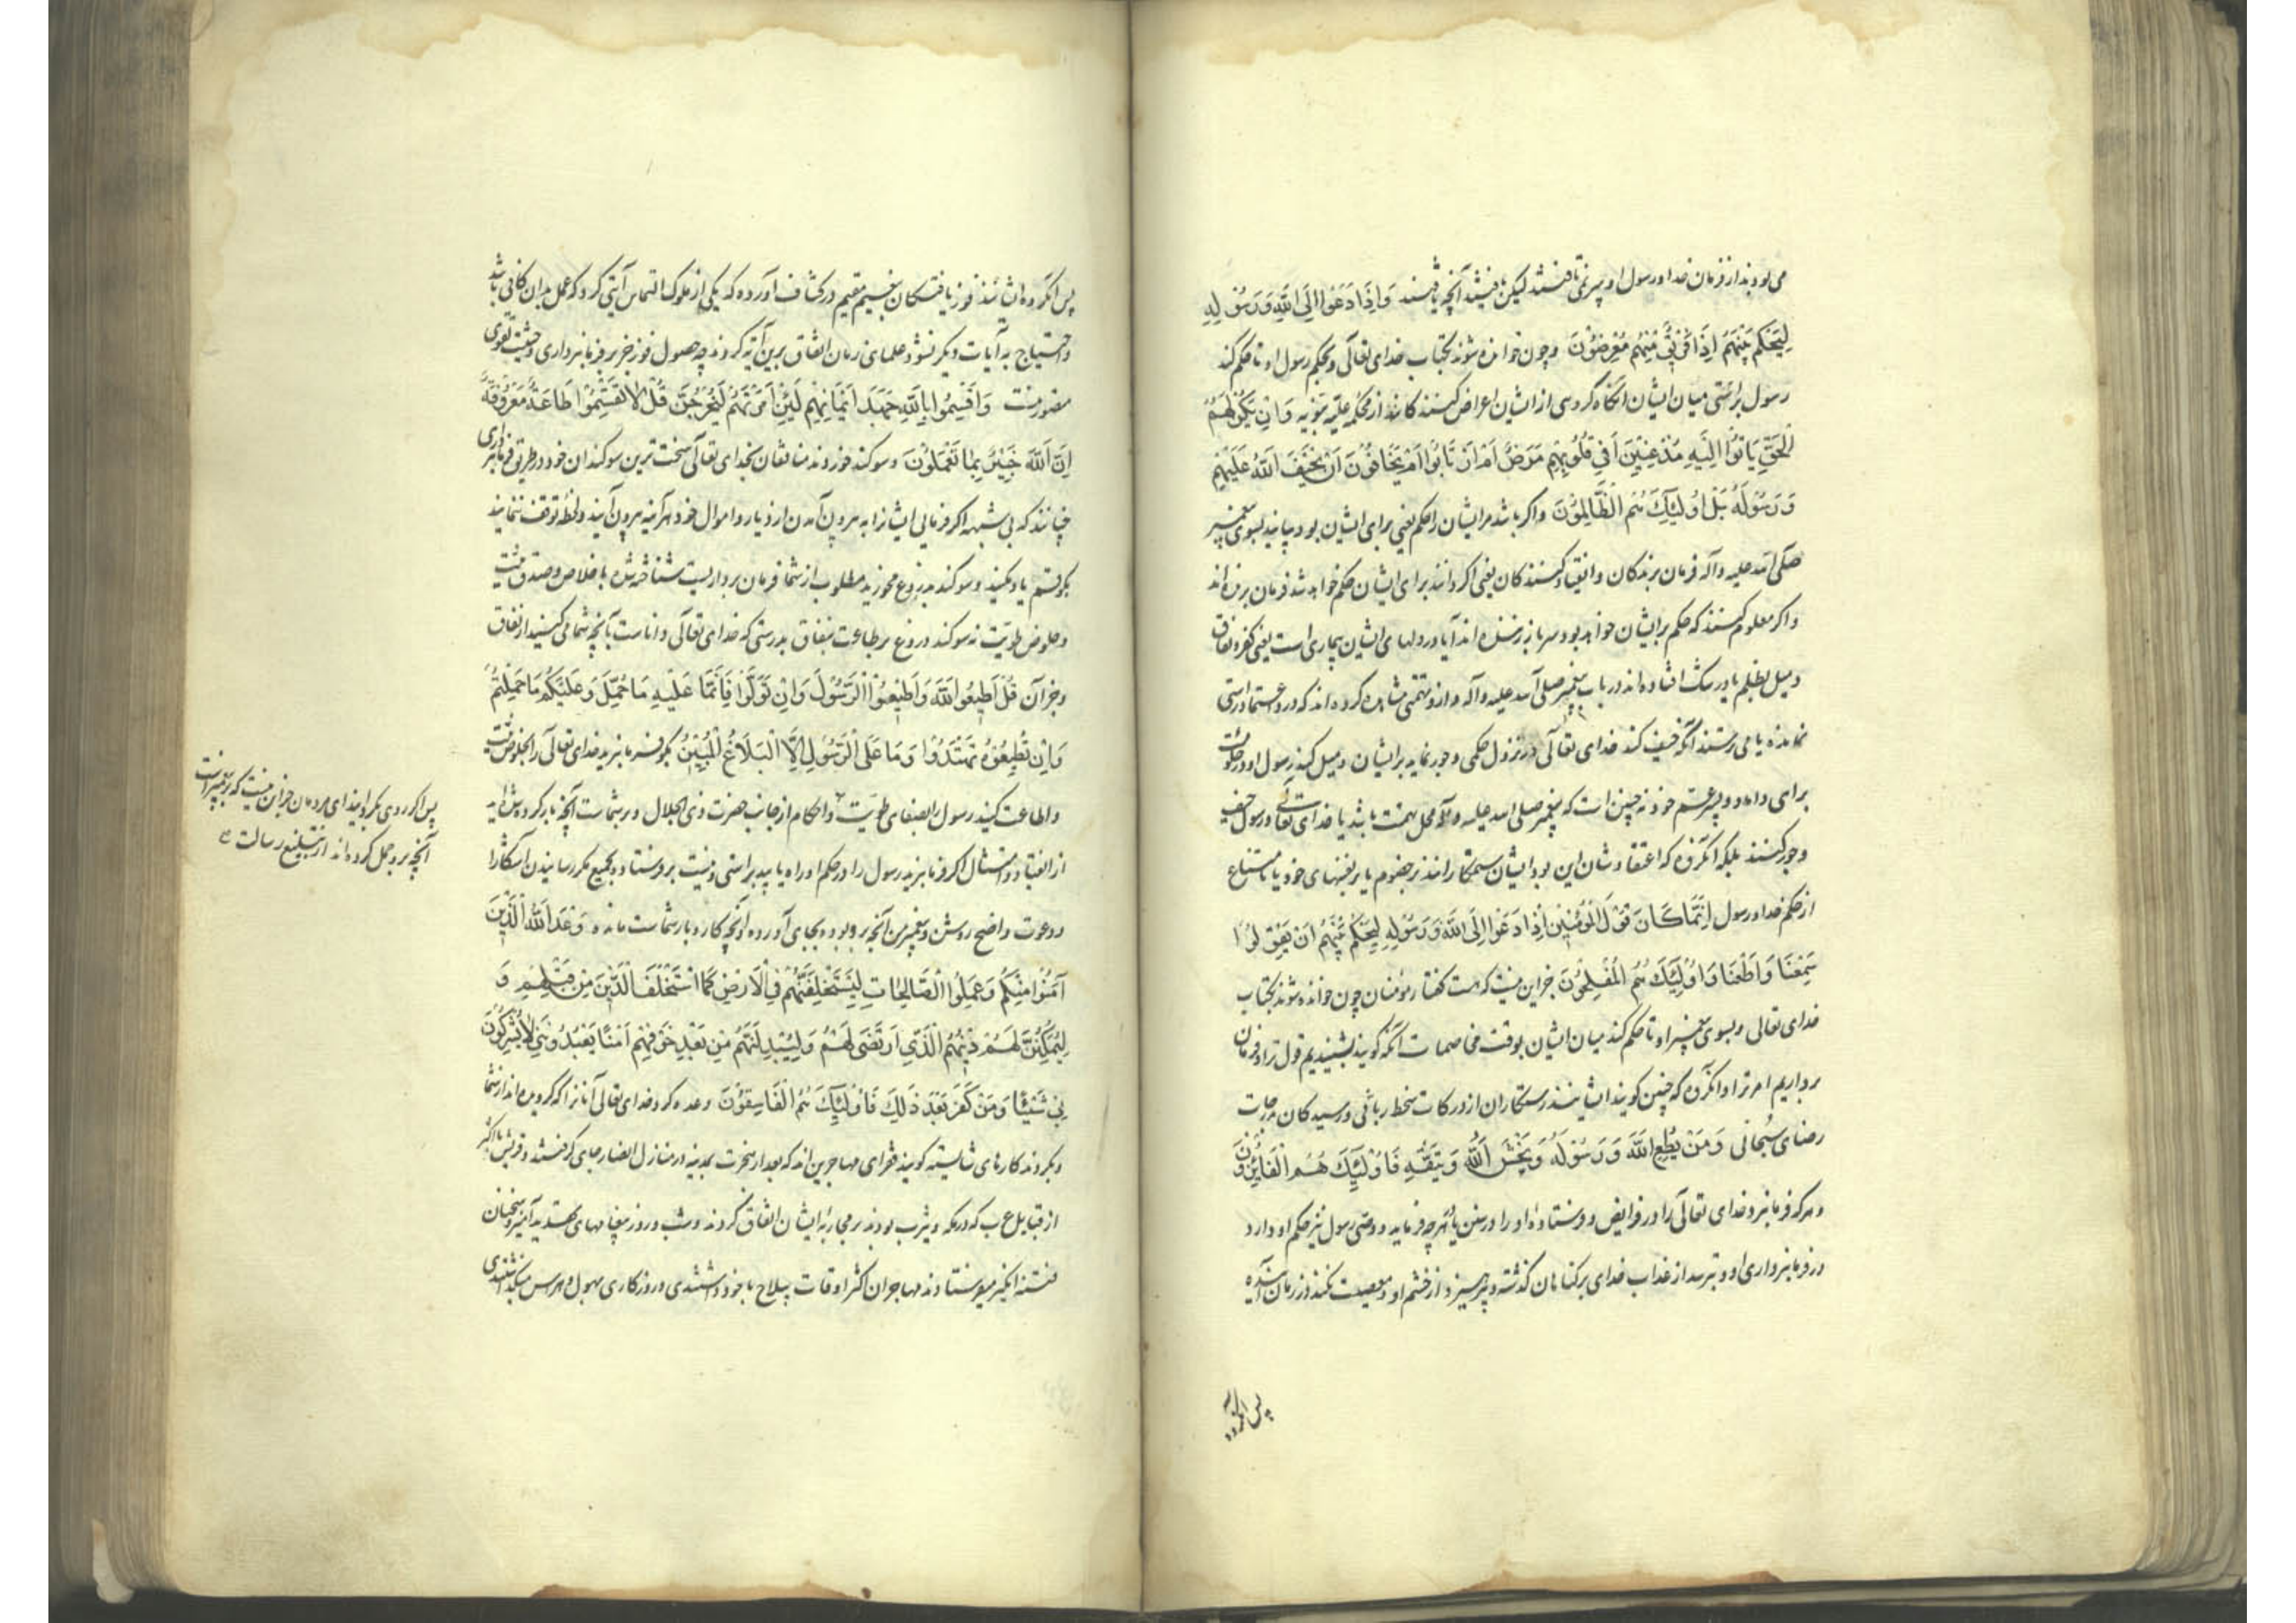 می بودند از فرمان خدا و رسول او سر نمی تافتند لیکن نافتند آنچه یافتند وَاِذَا دُعُوا اِلَی اللّٰهِ وَرَسُولِهِ
لِیَحْکُمَ بَیْنَهُمْ اِذَا فَرِیقٌ مِنْهُمْ مُعْرِضُونَ و چون خوانده شوند بکتاب خدای تعالی و بحکم رسول او تا حکم کند
رسول براستی میان ایشان آنگاه گروهی از ایشان اعراض کنندگانند از محکمه علیّه نبویه وَاِنْ یَکُنْ لَهُمُ
الْحَقُّ یَأتُوا اِلَیْهِ مُذْعِنِینَ اَفِی قُلُوبِهِمْ مَرَضٌ اَمِ ارْتَابُوا اَمْ یَخَافُونَ اَنْ یَحِیفَ اللّٰهُ عَلَیْهِمْ
وَرَسُولُهُ بَلْ اُولٰئِکَ هُمُ الظَّالِمُونَ و اگر باشد مر ایشان را حکم یعنی برای ایشان بود بیایند بسوی پیغمبر
صلی الله علیه و آله فرمان برندگان و انقیاد کنندگان یعنی اگر دانند برای ایشان حکم خواهد شد فرمان برنده اند
و اگر معلوم کنند که حکم بر ایشان خواهد بود سر باز زننده اند آیا در دلهای ایشان بیماری است یعنی کفر و نفاق
و میل بظلم یا در شک افتاده اند در باب پیغمبر صلی الله علیه و آله و ازو تهمتی مشاهده کرده اند که درو اعتماد راستی
نمانده یا می ترسند آنکه حیف کند خدای تعالی در نزول حکمی و جور نماید بر ایشان و میل کند رسول او در حکومت
برای داماد و پسر عم خود نه چنین است که پیغمبر صلی الله علیه و آله محل تهمت باشد یا خدای تعالی و رسول حیف
و جور کنند بلکه آنگروه که اعتقادشان این بود ایشان ستمکارانند بر خصوم یا بر نفسهای خود با امتناع
از حکم خدا و رسول اِنَّمَا کَانَ قَوْلَ الْمُؤْمِنِینَ اِذَا دُعُوا اِلَی اللّٰهِ وَرَسُولِهِ لِیَحْکُمَ بَیْنَهُمْ اَنْ یَقُولُوا
سَمِعْنَا وَاَطَعْنَا وَاُولٰئِکَ هُمُ الْمُفْلِحُونَ جز این نیست که هست گفتار مؤمنان چون خوانده شوند بکتاب
خدای تعالی و بسوی پیغمبر او تا حکم کند میان ایشان بوقت مخاصمات آنکه گویند بشنیدیم قول ترا و فرمان
برداریم امر ترا و آنگروه که چنین گویند ایشانند رستگاران از درکات سخط ربانی و رسیدگان بدرجات
رضای سبحانی وَمَنْ یُطِعِ اللّٰهَ وَرَسُولَهُ وَیَخْشَ اللّٰهَ وَیَتَّقْهِ فَاُولٰئِکَ هُمُ الْفَائِزُونَ
و هر که فرمان برد خدای تعالی را در فرایض و فرستاده او را در سنن یا هر چه فرماید و وصی رسول نیز حکم او دارد
در فرمانبرداری او و بترسد از عذاب خدای بر گناهان گذشته و پرهیزد از خشم او و معصیت نکند در زمان آینده
پس آنگروه
پس آنگروه ایشانند فوز یافتگان بنعیم مقیم در کشاف آورده که یکی از ملوک التماس آیتی کرد که عمل بدان کافی باشد
و احتیاج به آیات دیگر نشود علمای زمان اتفاق برین آیه کردند چه حصول فوز جز بفرمانبرداری و خشیت تقوی
متصور نیست وَاَقْسَمُوا بِاللّٰهِ جَهْدَ اَیْمَانِهِمْ لَئِنْ اَمَرْتَهُمْ لَیَخْرُجُنَّ قُلْ لَا تُقْسِمُوا طَاعَةٌ مَعْرُوفَةٌ
اِنَّ اللّٰهَ خَبِیرٌ بِمَا تَعْمَلُونَ و سوگند خوردند منافقان بخدای تعالی سخت ترین سوگندان خود در طریق فرمانبرداری
چنانند که بی شبهه اگر فرمایی ایشانرا به بیرون آمدن از دیار و اموال خود هر آینه بیرون آیند و لحظه توقف ننمایند
بگو قسم یاد مکنید و سوگند بدروغ مخورید مطلوب از شما فرمان برداریست شناخته شده باخلاص و صدق نیت
و خلوص طویت نه سوگند دروغ بر طاعت بنفاق بدرستی که خدای تعالی داناست بآنچه شما می کنید از نفاق
و جز آن قُلْ اَطِیعُوا اللّٰهَ وَاَطِیعُوا الرَّسُولَ وَاِنْ تَوَلَّوْا فَاِنَّمَا عَلَیْهِ مَا حُمِّلَ وَعَلَیْکُمْ مَا حُمِّلْتُمْ
وَاِنْ تُطِیعُوهُ تَهْتَدُوا وَمَا عَلَی الرَّسُولِ اِلَّا الْبَلَاغُ الْمُبِینُ بگو فرمان برید خدای تعالی را بخلوص نیت
و اطاعت کنید رسول را بصفای طویت و احکام از جانب حضرت ذی الجلال و بر شماست آنچه بار کرده شده اید
از انقیاد و امتثال اگر فرمان برید رسول را در حکم او راه یابید براستی و نیست بر فرستاده بجمیع مگر رسانیدن آشکارا
و دعوت واضح روشن و پیغمبر من آنچه برو بود بجای آورده و آنچه کار و بار شماست مانده وَعَدَ اللّٰهُ الَّذِینَ
آمَنُوا مِنْکُمْ وَعَمِلُوا الصَّالِحَاتِ لَیَسْتَخْلِفَنَّهُمْ فِی الْاَرْضِ کَمَا اسْتَخْلَفَ الَّذِینَ مِنْ قَبْلِهِمْ وَ
لَیُمَکِّنَنَّ لَهُمْ دِینَهُمُ الَّذِی ارْتَضَی لَهُمْ وَلَیُبَدِّلَنَّهُمْ مِنْ بَعْدِ خَوْفِهِمْ اَمْنًا یَعْبُدُونَنِی لَا یُشْرِکُونَ
بِی شَیْئًا وَمَنْ کَفَرَ بَعْدَ ذٰلِکَ فَاُولٰئِکَ هُمُ الْفَاسِقُونَ وعده کرد خدای تعالی آنانرا که گرویده اند از شما
و بکردند کارهای شایسته گویند فقرای مهاجرین اند که بعد از هجرت بمدینه در منازل انصار جای گرفتند و قریش با اکثر
از قبایل عرب که در مکه و یثرب بودند بر محاربه ایشان اتفاق کردند و شب و روز پیغامهای تهدید آمیز و سخنان
فتنه انگیز میفرستادند مهاجران اکثر اوقات سلاح با خود داشتندی و روزگاری بهول و هراس میگذاشتندی
پس اگر روی بگردانید ای مردمان جز این نیست که بر پیغمبر است
آنچه برو حمل کرده اند از تبلیغ رسالت